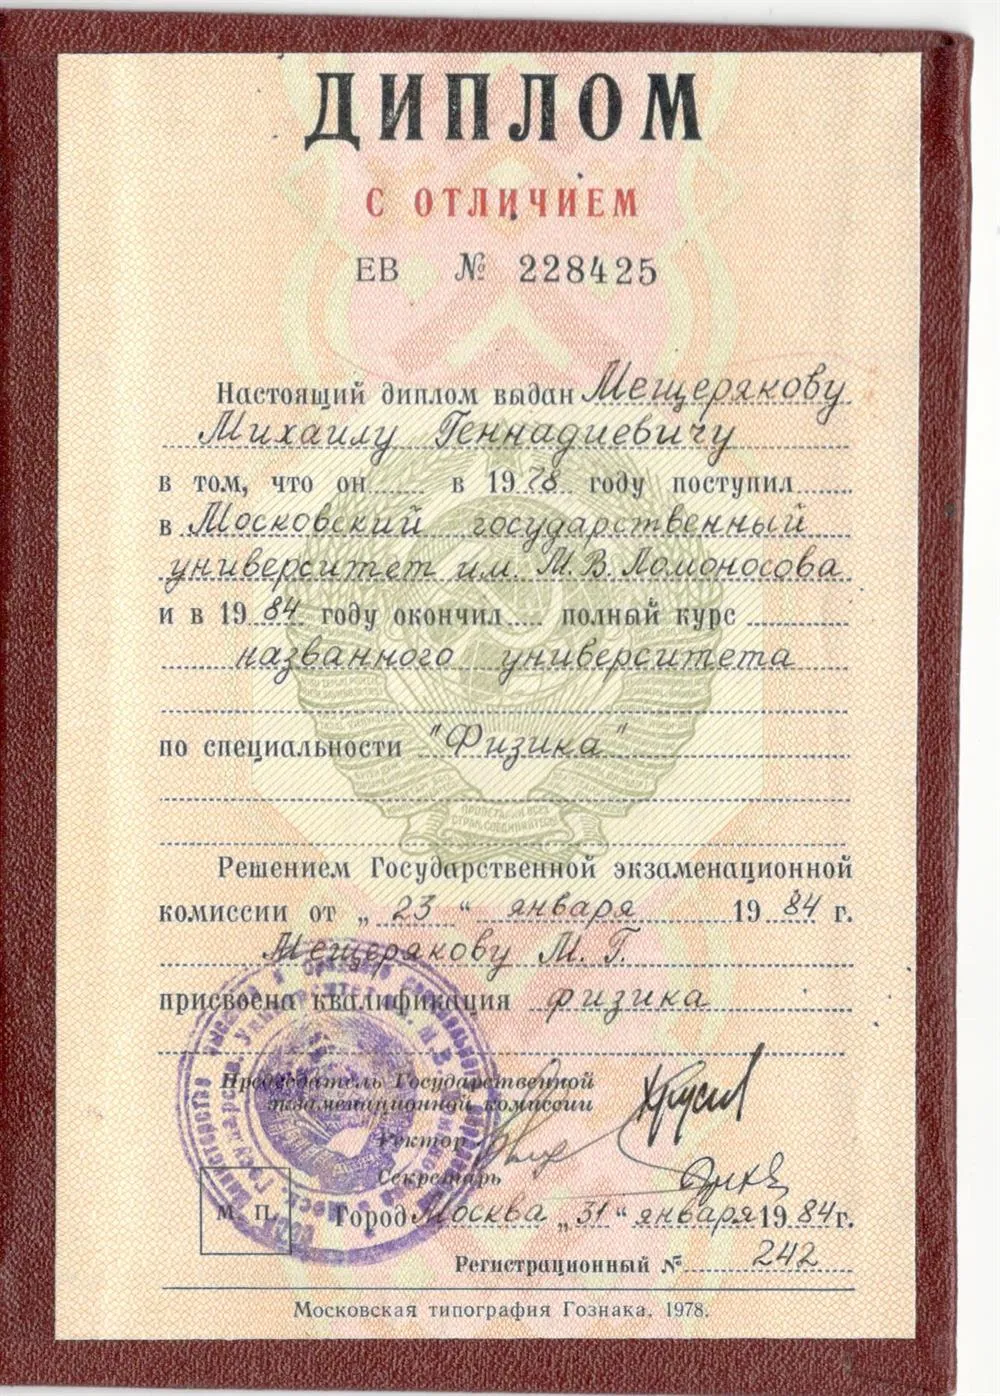 ДИПЛОМ
С ОТЛИЧИЕМ
ЕВ № 228425
Настоящий диплом выдан Мещерякову
Михаилу Геннадиевичу
в том, что он в 1978 году поступил
в Московский государственный
университет им. М.В.Ломоносова
и в 1984 году окончил полный курс
названного университета
по специальности "Физика"
ПРОЛЕТАРИИ ВСЕХ
СТРАН, СОЕДИНЯЙТЕСЬ!
Решением Государственной экзаменационной
комиссии от „23“ января 1984 г.
Мещерякову М. Г.
присвоена квалификация физика
Председатель Государственной
экзаменационной комиссии
Ректор
Секретарь
М. П.
Город Москва „31“ января 1984 г.
Регистрационный № 242
Московская типография Гознака. 1978.